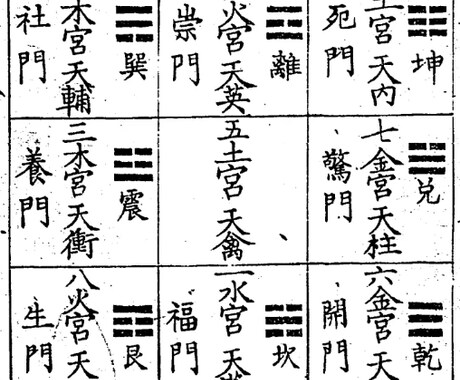 坤
土宮 天内
死門
離
火宮 天英
崇門
巽
木宮 天輔
社門
兌
七金宮 天柱
驚門
五土宮 天禽
震
三木宮 天衝
養門
乾
六金宮 天
開門
坎
一水宮 天
福門
艮
八火宮 天
生門